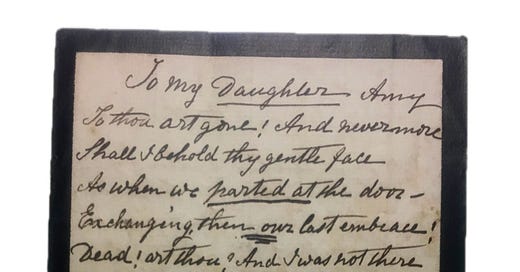 To my Daughter Amy
To thou art gone! And nevermore
Shall I behold thy gentle face
As when we parted at the door –
Exchanging, then our last embrace!
Dead! art thou? And I was not there